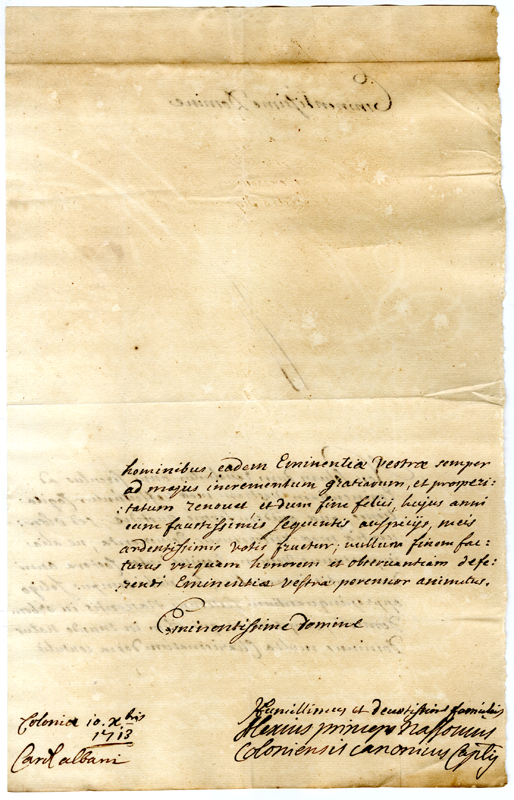 hominibus, eadem Eminentiæ Vestræ semper
ad majus incrementum gratiarum, et prosperi:
:tatum renovet et dum fine felici, hujus anni
cum faustissimis sequentis auspicijs, meis
ardentissimis votis fruetur; nullum finem fac:
turus unquam honorem et observantiam defe:
:rendi Eminentiæ Vestræ perennior animulus.
Eminentissime Domine
Humillimus et devotissimus famulus
Coloniæ 10. Xbris
1713
Alexius princeps Nassovius
Coloniensis Canonicus
Card albani